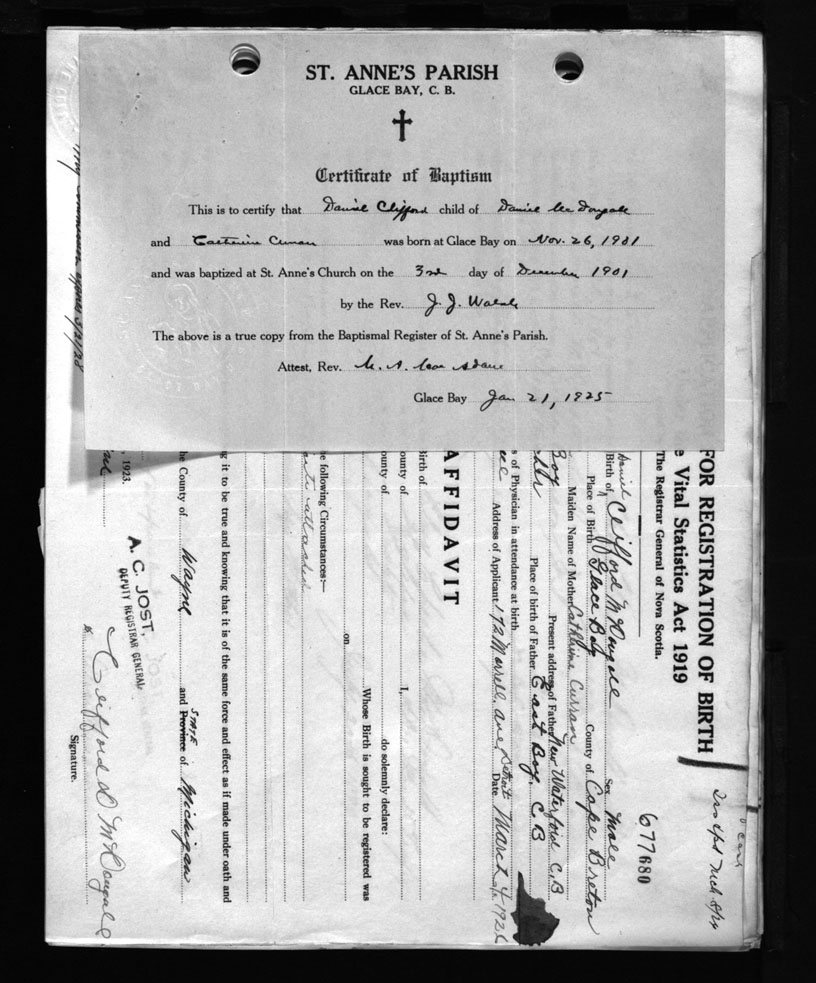 ST. ANNE'S PARISH
GLACE BAY, C. B.
Certificate of Baptism
This is to certify that Daniel Clifford child of Daniel McDougall
and Catherine Curran was born at Glace Bay on Nov. 26, 1901
and was baptized at St. Anne's Church on the 3rd day of December 1901
by the Rev. J. J. Walsh
The above is a true copy from the Baptismal Register of St. Anne's Parish.
Attest, Rev. M. A. MacAdam
Glace Bay Jan 21, 1925
My Commission expires 3/2/28
FOR REGISTRATION OF BIRTH
e Vital Statistics Act 1919
The Registrar General of Nova Scotia.
677680
Daniel
Birth of Clifford McDougall Sex male
Place of Birth Glace Bay County of Cape Breton
Maiden Name of Mother Catherine Curran
Boy Present address of Father New Waterford C.B
Place of birth of Father East Bay, C B
s of Physician in attendance at birth
Address of Applicant 172 Morrell ave Detroit Date March 4
AFFIDAVIT
Birth of
ounty of I,
ounty of do solemnly declare:
Whose Birth is sought to be registered was
on
e following Circumstances:—
g it to be true and knowing that it is of the same force and effect as if made under oath and
he County of Wayne and Province of STATE Michigan
, 1923.
A. C. JOST,
DEPUTY REGISTRAR GENERAL
Clifford D McDougall
Signature.